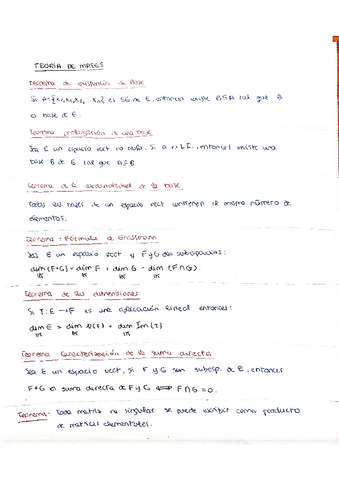 TEORÍA DE MATES
Teorema de existencia de Base
Si A={x₁,x₂,x₃, ..xₙ} es SG de E, entonces existe B⊆A tal que B
es base de E.
Teorema prolongación de una base
Sea E un espacio vect. no nulo, Si A es LI, entonces existe una
base B de E tal que A⊆B
Teorema de la cardinalidad de la base.
Todas las bases de un espacio vect contienen el mismo número de
elementos.
Teorema: Fórmula de Grassmann
Sea E un espacio vect y F y G dos subespacios:
dim (F+G) = dim F + dim G - dim (F∩G).
IK IK IK IK
Teorema de las dimensiones
Si T: E→F es una aplicación lineal entonces:
dim E = dim N(T) + dim Im(T)
IK IK IK
Teorema: Caracterización de la suma directa
Sea E un espacio vect, si F y G son subesp. de E, entonces
F+G es suma directa de F y G ⟺ F∩G=0.
Teorema: Toda matriz no singular se puede escribir como producto
de matrices elementales.